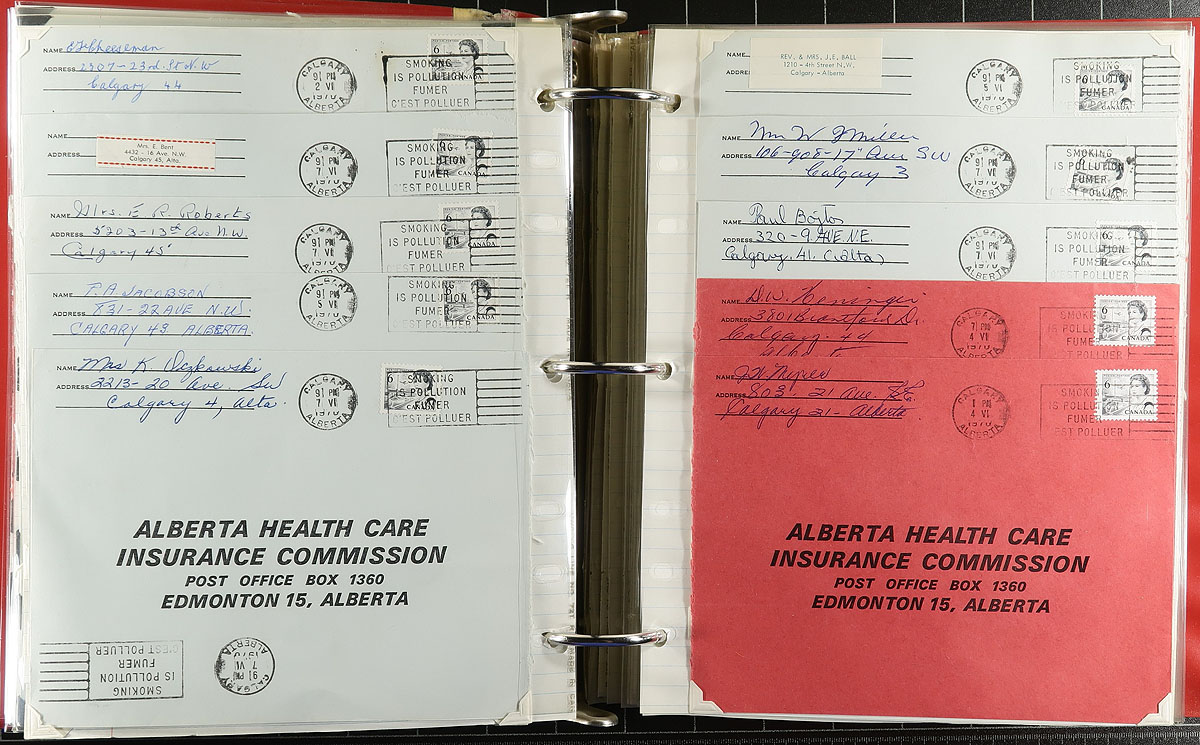 NAME E H Cheeseman
ADDRESS 2907-23rd. St N.W
Calgary 44
CALGARY
91 PM
2 VI
1970
ALBERTA
6
CANADA
SMOKING
IS POLLUTION
FUMER
C'EST POLLUER
NAME
ADDRESS
Mrs. E. Bent
4432 - 16 Ave. N.W.
Calgary 45, Alta.
CALGARY
91 PM
7 VI
1970
ALBERTA
6
CANADA
SMOKING
IS POLLUTION
FUMER
C'EST POLLUER
NAME Mrs. E. R. Roberts
ADDRESS 5203-13th Ave N.W.
Calgary 45
CALGARY
91 PM
7 VI
1970
ALBERTA
6
CANADA
SMOKING
IS POLLUTION
FUMER
C'EST POLLUER
NAME P.A JACOBSON
ADDRESS 831-22 AVE N.W.
CALGARY 43 ALBERTA.
CALGARY
91 PM
5 VI
1970
ALBERTA
6
CANADA
SMOKING
IS POLLUTION
FUMER
C'EST POLLUER
NAME Mrs K
ADDRESS 2213-20 Ave. SW
Calgary 4, Alta.
CALGARY
91 PM
7 VI
1970
ALBERTA
6
CANADA
SMOKING
IS POLLUTION
FUMER
C'EST POLLUER
ALBERTA HEALTH CARE
INSURANCE COMMISSION
POST OFFICE BOX 1360
EDMONTON 15, ALBERTA
SMOKING
IS POLLUTION
FUMER
C'EST POLLUER
CALGARY
91 PM
7 VI
1970
ALBERTA
NAME
ADDRESS
REV. & MRS. J.E. BALL
1210 - 4th Street N.W.
Calgary - Alberta
CALGARY
91 PM
5 VI
1970
ALBERTA
CANADA
SMOKING
IS POLLUTION
FUMER
C'EST POLLUER
NAME Wm W Miller
ADDRESS 106-908-17th Ave SW
Calgary 3
CALGARY
91 PM
7 VI
1970
ALBERTA
SMOKING
IS POLLUTION
FUMER
C'EST POLLUER
NAME Paul Bojtos
ADDRESS 320-9. AVE. N.E.
Calgary. 41. (Alta)
CALGARY
91 PM
7 VI
1970
ALBERTA
6
CANADA
SMOKING
IS POLLUTION
FUMER
C'EST POLLUER
NAME D.W.
ADDRESS 3801 Brantford Dr.
Calgary. 49
CALGARY
7 PM
4 VI
1970
ALBERTA
6
CANADA
SMOKING
IS POLLUTION
FUMER
C'EST POLLUER
NAME
ADDRESS 803 - 21 Ave. S.E.
Calgary 21 - Alberta
CALGARY
1 PM
4 VI
1970
ALBERTA
6
CANADA
SMOKING
IS POLLUTION
FUMER
C'EST POLLUER
ALBERTA HEALTH CARE
INSURANCE COMMISSION
POST OFFICE BOX 1360
EDMONTON 15, ALBERTA